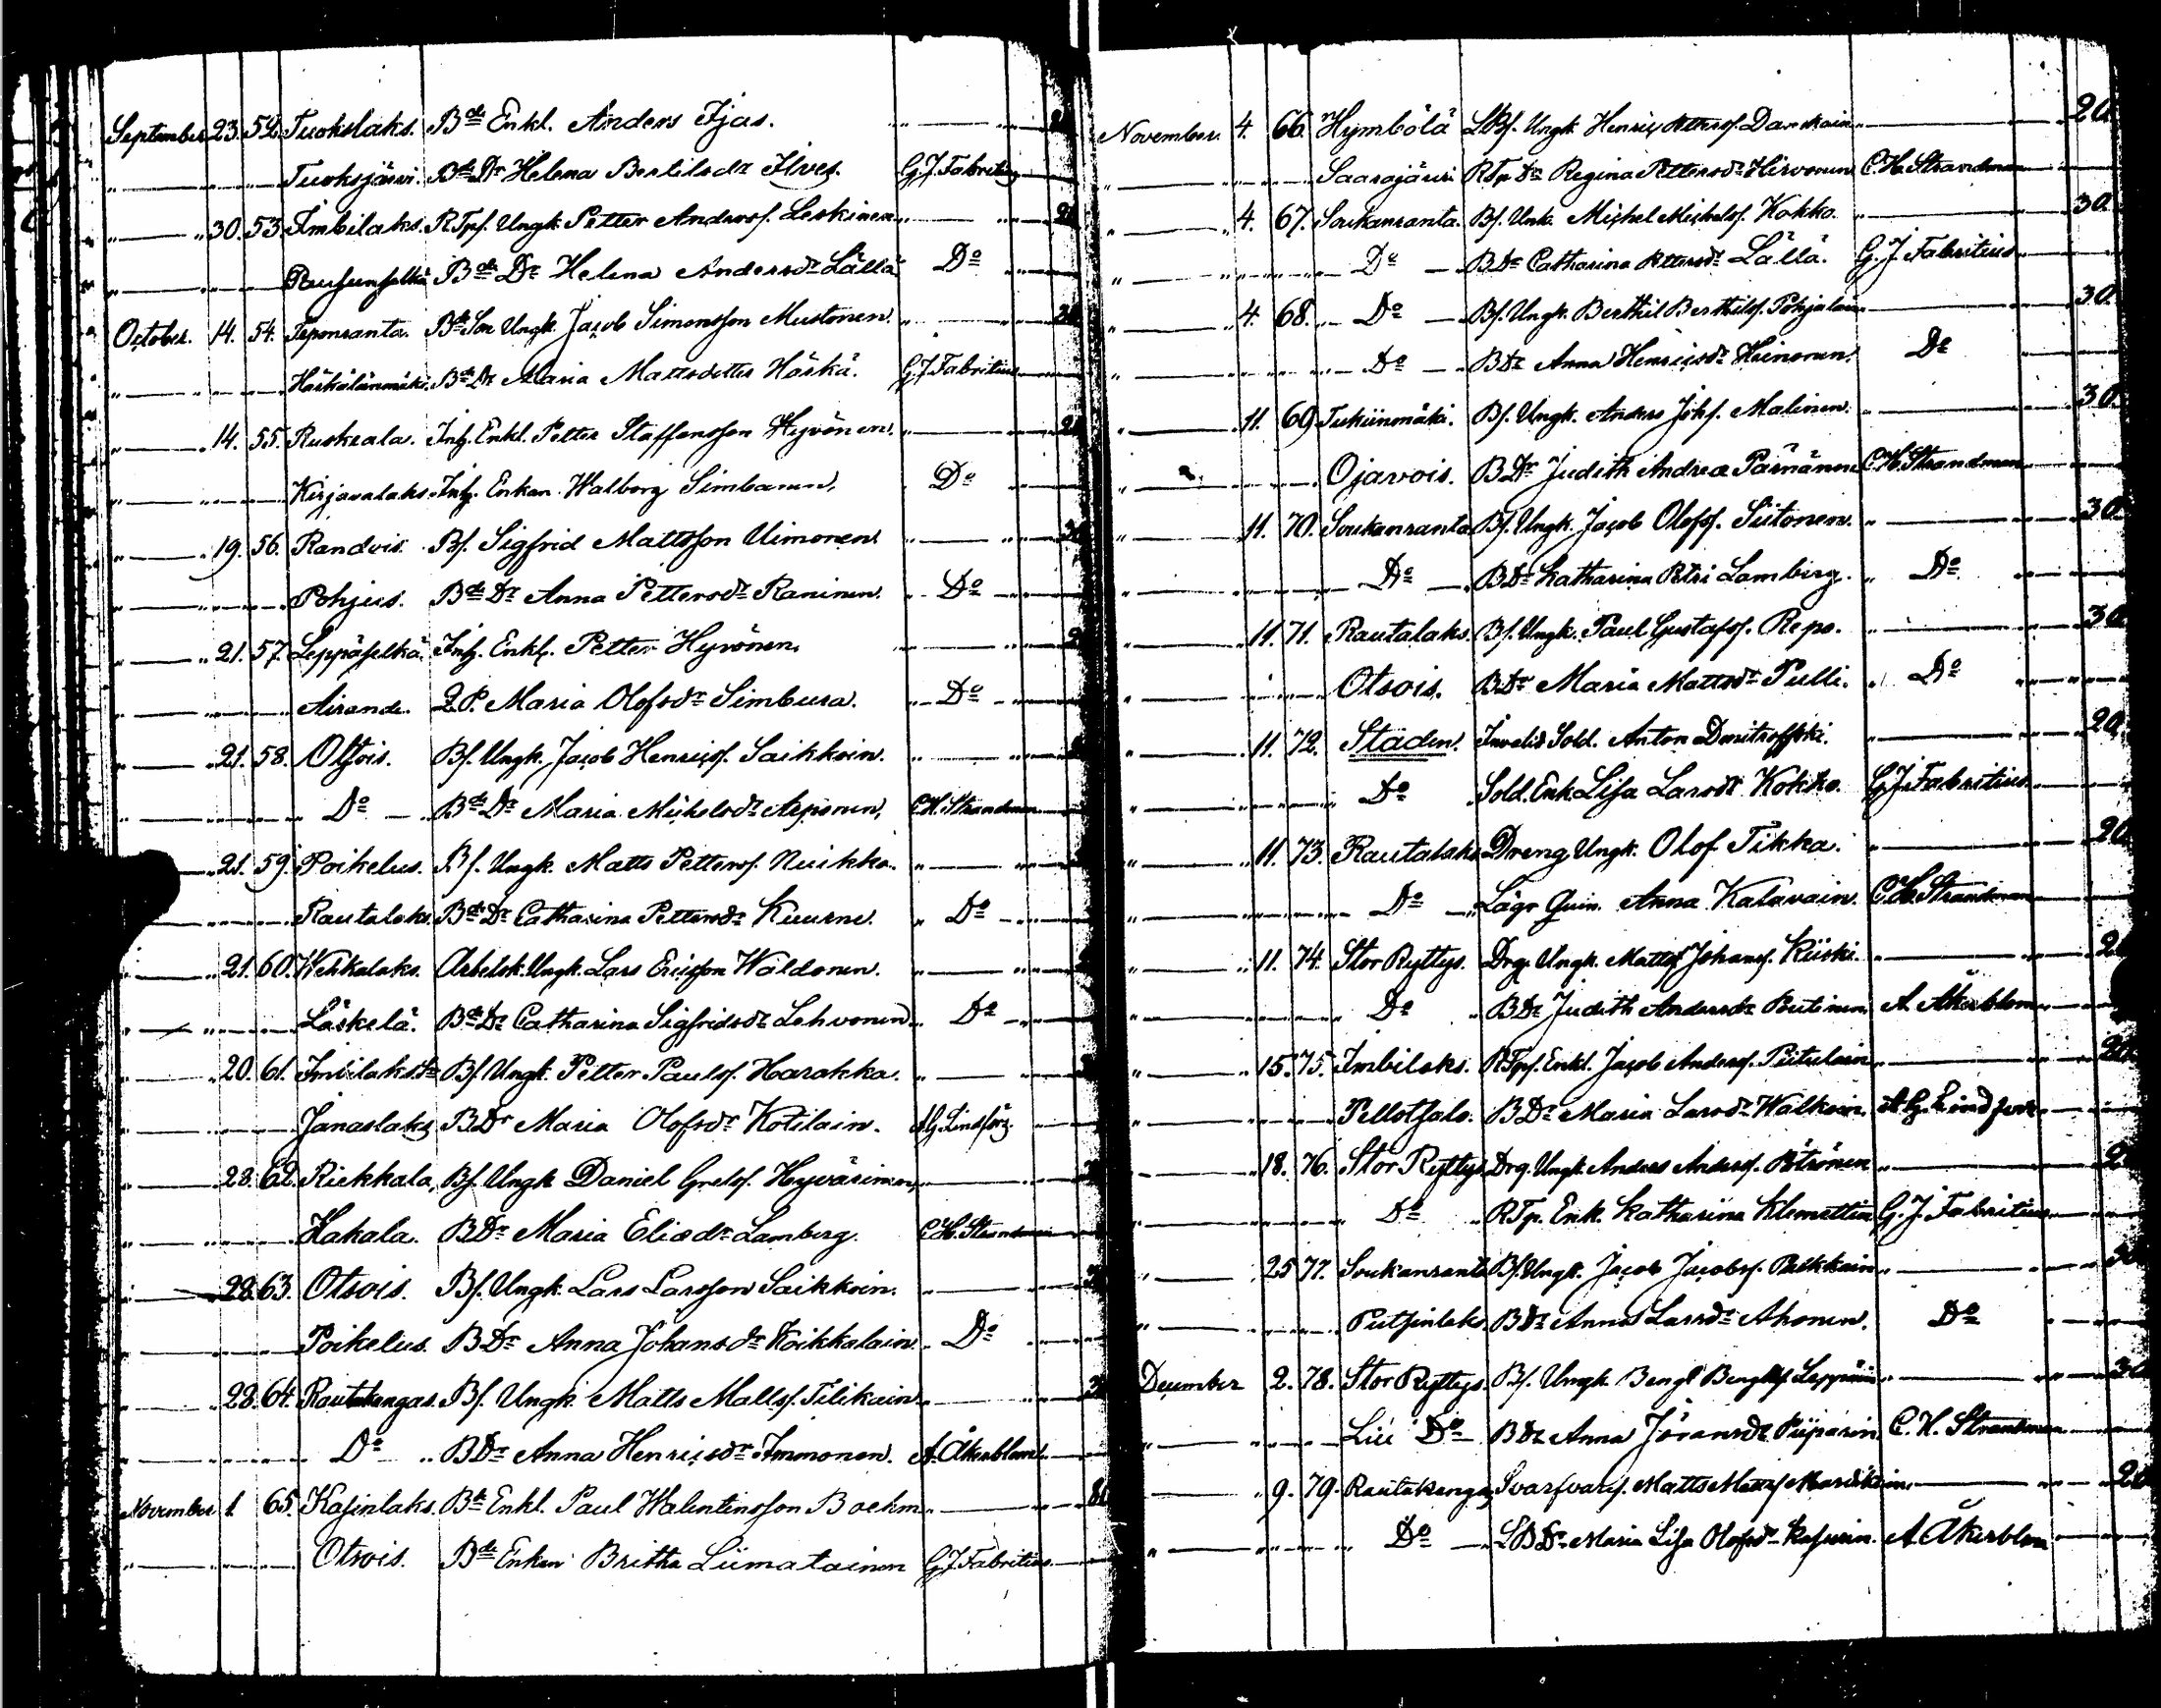 September 23. 52. Tuokslaks. Bde Enkl. Anders Ijas.
Tuoksjärvi. Bde Dr Helena Bertilsdr Ilves. G. J. Fabritius
30. 53. Imbilaks. RTpf. Ungk. Petter Andersf. Leskinen
Rausunselkä Bde Dr Helena Andersdr Lällä Do
October. 14. 54. Teponranta. Bde Son Ungk. Jacob Simonsson Mustonen.
Härkälänmäki. Bde Dr Maria Mattsdotter Härkä. G. J. Fabritius
14. 55. Ruskeala. Inh. Enkl. Petter Staffansson Hyvönen.
Kirjavalaks. Inh. Enkan Walborg Simbanen. Do
19. 56. Randvis. Bf. Sigfrid Mattsson Uimonen
Pohjus. Bde Dr Anna Pettersdr Raninen. Do
21. 57. Leppäselkä. Inh. Enkl. Petter Hyvönen.
Airande. Q.P. Maria Olofsdr Simbura. Do
21. 58. Otsois. Bf. Ungk. Jacob Henricsf. Saikkoin.
Do Bde Dr Maria Michelsdr Arponen. C. H. Strandman
21. 59. Poikelus. Bf. Ungk. Matts Pettersf. Nuikka.
Rautalaks. Bde Dr Catharina Pettersdr Kuurne. Do
21. 60. Wehkalaks. Arbetsk. Ungk. Lars Ericsson Waldonen.
Läskelä. Bde Dr Catharina Sigfridsdr Lehvonen Do
20. 61. Imbilaks Bf. Ungk. Petter Paulsf. Harakka.
Janaslaks BDr Maria Olofsdr Kotilain. A. G. Lindfors
28. 62. Riekkala, Bf. Ungk. Daniel Grelsf. Hyvärinen,
Hakala. BDr Maria Eliædr Lamberg. C. H. Strandman
28. 63. Otsois. Bf. Ungk. Lars Larsson Saikkoin.
Poikelus. BDr Anna Johansdr Koikkalain. Do
28. 64. Rautakangas. Bf. Ungk. Matts Mattsf. Tilikain.
Do BDr Anna Henricsdr Immonen. A. Åkerblom
November 1. 65. Kasinlaks. Bde Enkl. Paul Walentinsson Boehm
Otsois. Bde Enkan Britha Liimatainen G. J. Fabritius
November. 4. 66. Hymbölä LBf. Ungk. Henric Pettersf. Danskain 20.
Saarajärvi RTp Dr Regina Pettersdr Hirvonen C. H. Strandman
4. 67. Soukanranta. Bf. Unk. Michel Michelsf. Kokko. 30.
Do BDr Catharina Pettersdr Lällä. G. J. Fabritius
4. 68. Do Bf. Ungk. Berthil Berthilsf. Pohjalain 30.
Do BDr Anna Henricsdr Heinonen. Do
11. 69. Tukiinmäki. Bf. Ungk. Anders Johsf. Malinen. 30.
Ojavois. BDr Judith Andreæ Pärnänen C. H. Strandman
11. 70. Soukanranta Bf. Ungk. Jacob Olofsf. Siitonen. 30.
Do BDr Katharina Petri Lamberg. Do
11. 71. Rautalaks. Bf. Ungk. Paul Gustafsf. Repo. 30.
Otsois. BDr Maria Mattsdr Pulli. Do
11. 72. Staden. Invalid Sold. Anton Dmitroffski. 20.
Do Sold. Enk Lisa Larsdr Kokko. G. J. Fabritius
11. 73. Rautalaks Dreng Ungk. Olof Tikka. 20
Do Läge Quin. Anna Kalavain. C. H. Strandman
11. 74. Stor Ryttys. Drg. Ungk. Matts Johansf. Kiiski. 2
Do BDr Judith Andersdr Poutinen A Åkerblom
15. 75. Imbilaks. RTpf. Enkl. Jacob Andersf. Piitulain 20
Pellotsalo. BDr Maria Larsdr Walkoin. A. G. Lindfors
18. 76. Stor Ryttys Drg. Ungk. Anders Andersf. Pötrönen 2
Do RTp. Enk. Katharina Klemettin G. J. Fabritius
25 77. Soukanranta Bf. Ungk. Jacob Jacobsf. Pulkkain
Putsinlaks BDr Anna Larsdr Ahonen. Do
December 2. 78. Stor Ryttys. Bf. Ungk. Bengt Bengtsf. Leppäin 30
Lill Do BDr Anna Göransdr Piiparin C. H. Strandman
9. 79. Rautakangas Svarfvarf. Matts Mattsf. Mardikain. 20
Do LBDr Maria Lisa Olofsdr Kasurin. A Åkerblom